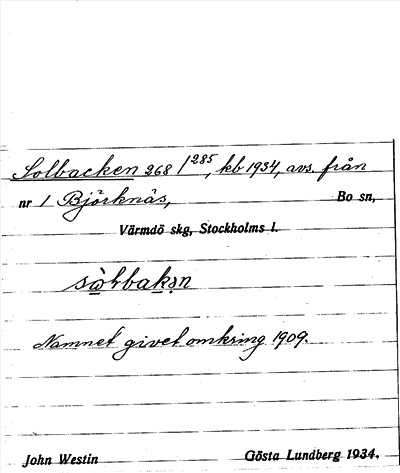 Solbacken 268 1/285, kb 1934, avs. från
nr 1 Björknäs, Bo sn,
Värmdö skg, Stockholms l.
Namnet givet omkring 1909.
John Westin Gösta Lundberg 1934.